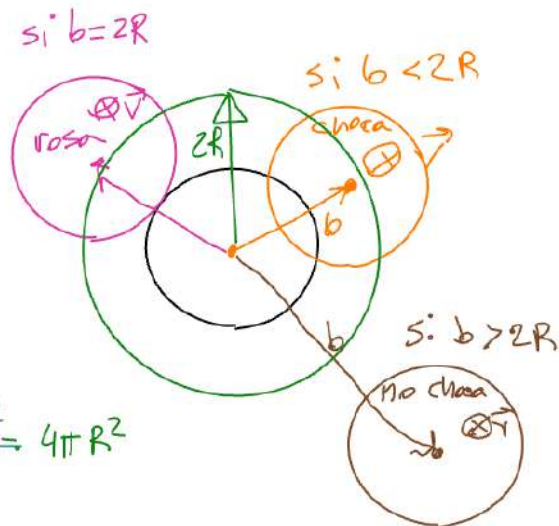 si b=2R
⊗ V⃗
rosa
2R
si b < 2R
choca
⊗ V⃗
b
b
si b > 2R
no choca
⊗ V⃗
= 4πR²